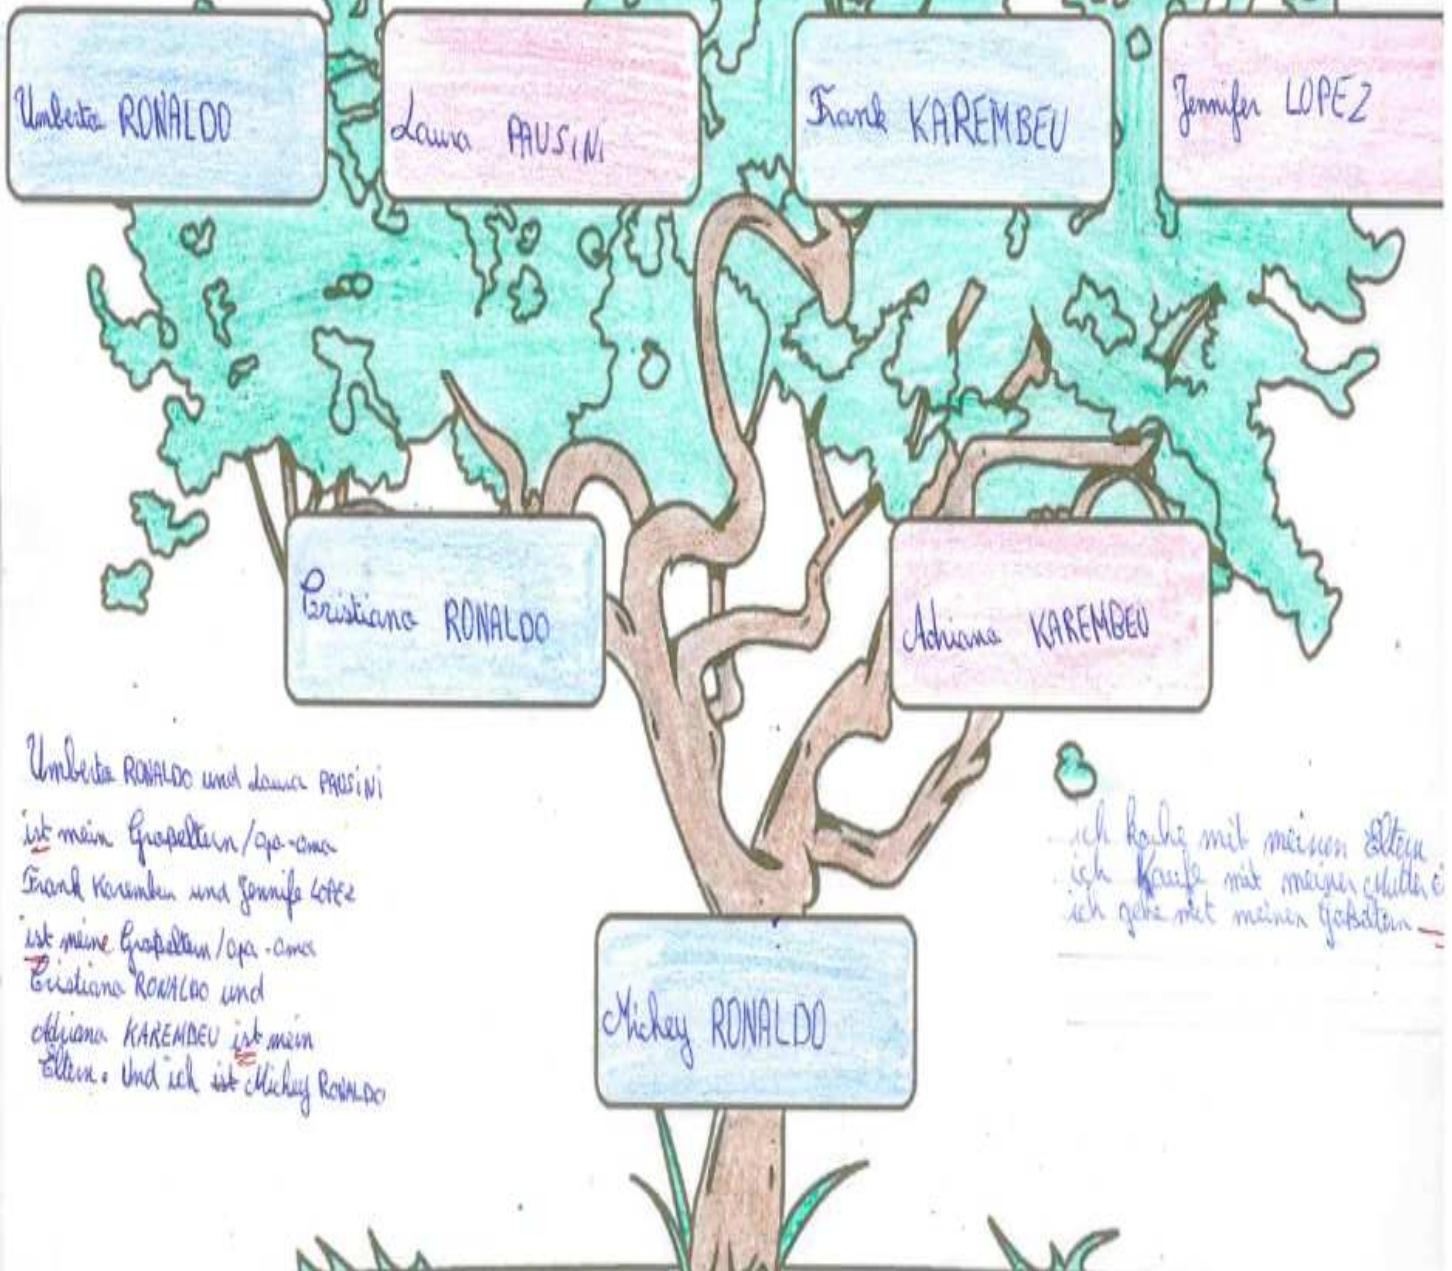 Umberto RONALDO
Laura PAUSiNi
Frank KAREMBEU
Jennifer LOPEZ
Cristiano RONALDO
Adriana KAREMBEU
Umberto RONALDO und Laura PAUSiNi
ist mein Großeltern/opa-oma
Frank Karembeu und Jennife LOPEZ
ist meine Großeltern/opa-oma
Cristiano RONALDO und
Adriana KAREMBEU ist mein
Eltern. Und ich ist Mickey RONALDO
ich koche mit meinen Eltern
ich Kaufe mit meiner Mutter
ich gehe mit meinen
Mickey RONALDO